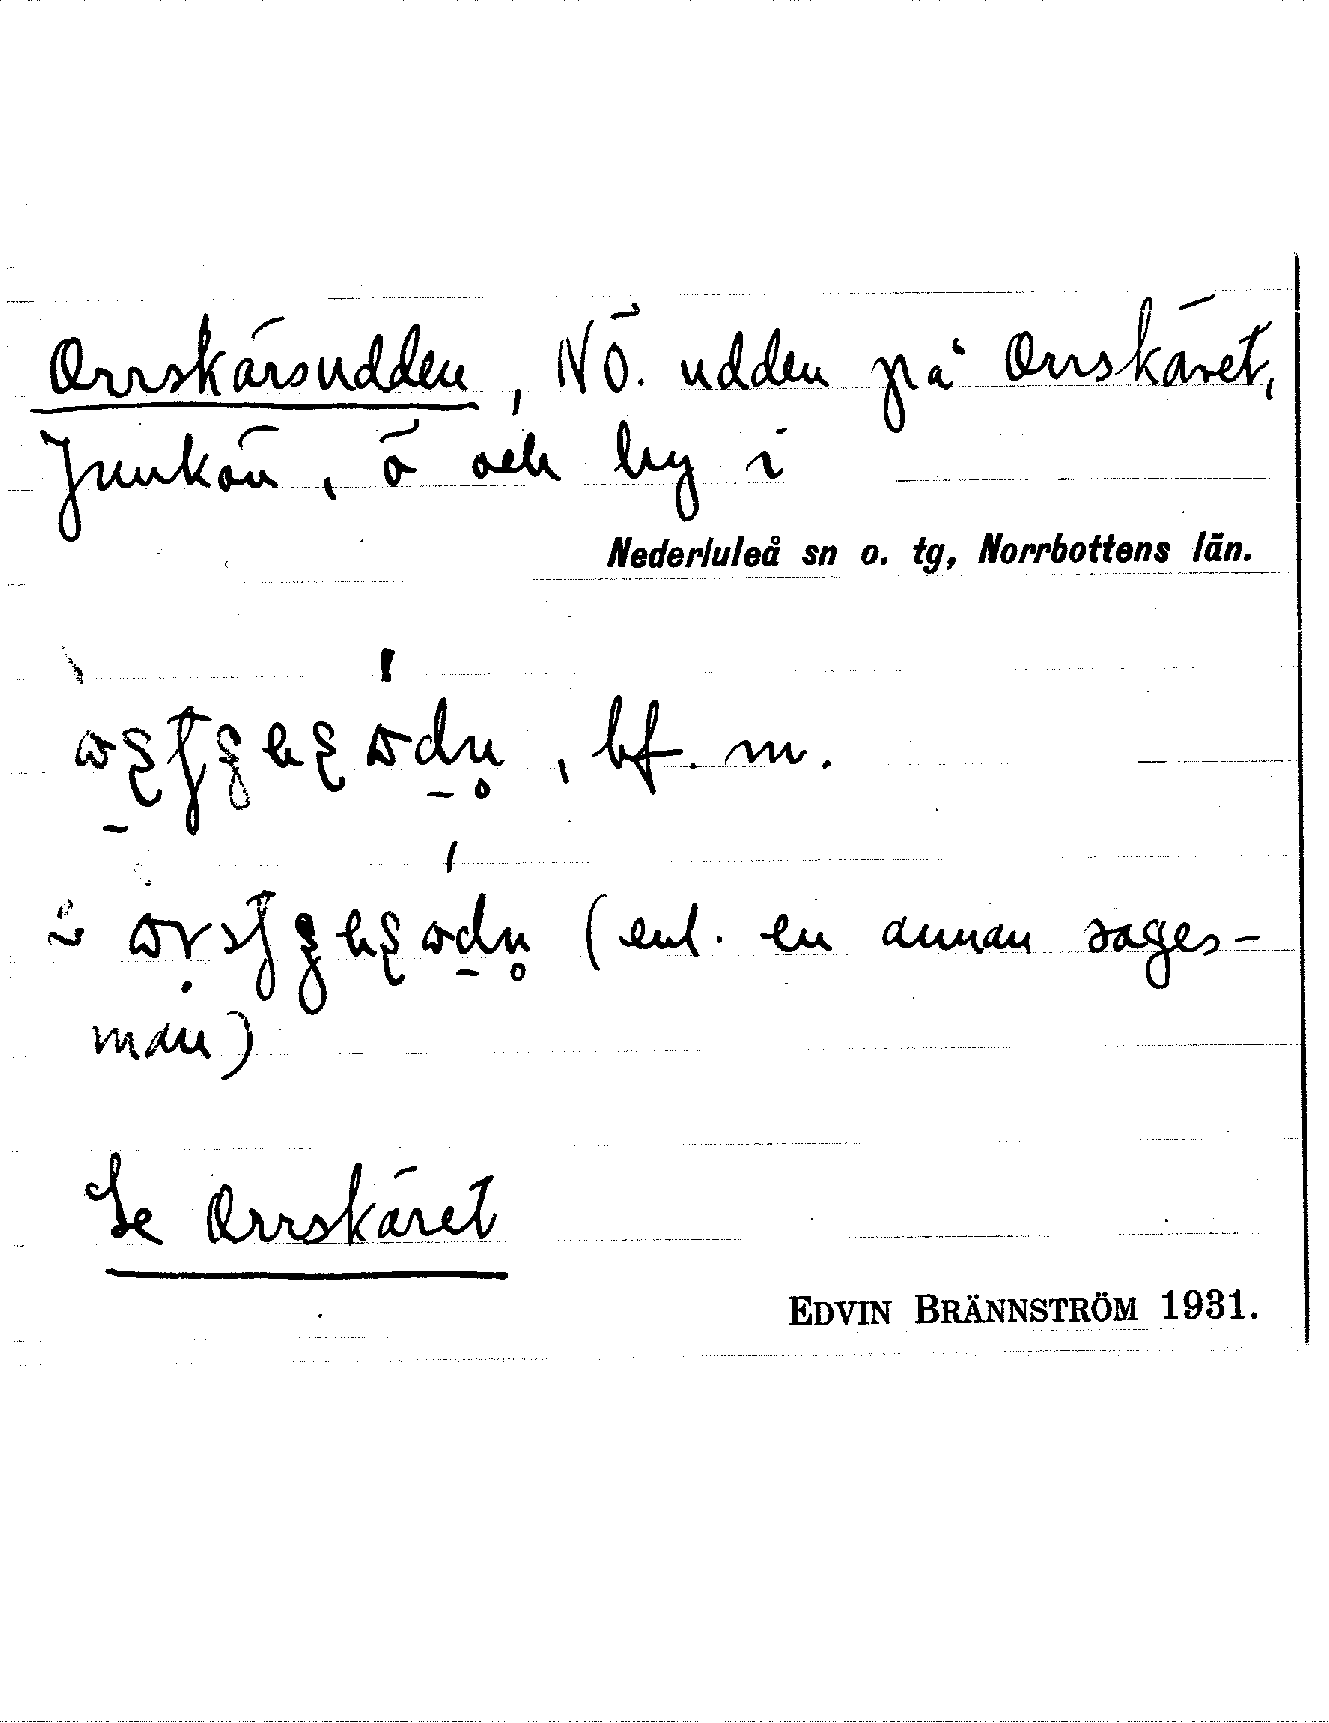 Orrskärsudden, NÖ. udden på Orrskäret,
Junkön, ö och by i
Nederluleå sn o. tg, Norrbottens län.
, bf. m.
(enl. en annan sages-
man)
Se Orrskäret
EDVIN BRÄNNSTRÖM 1931.